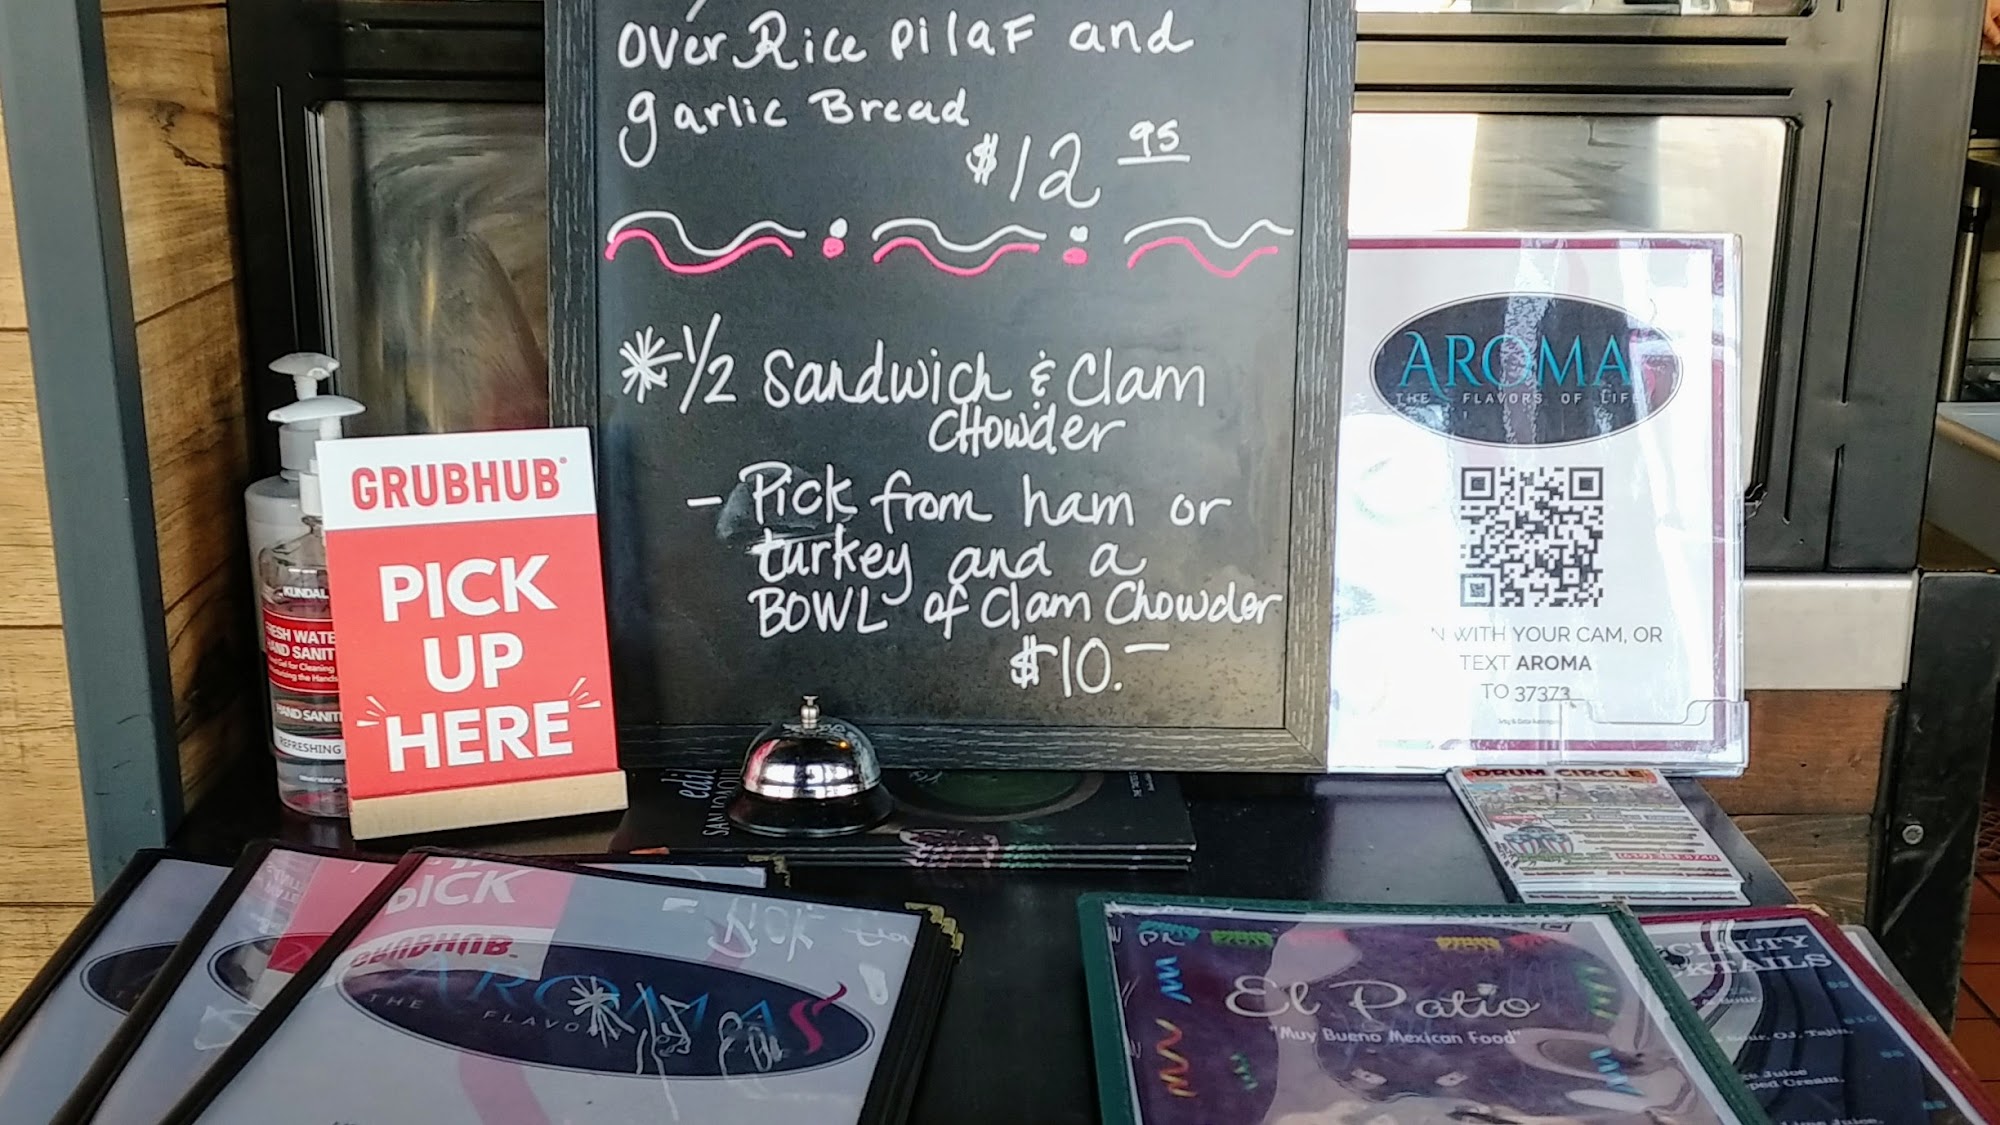 over Rice pilaf and
garlic Bread
$12 95
*1/2 Sandwich & Clam
Chowder
- Pick from ham or
turkey and a
BOWL of Clam Chowder
$10.-
GRUBHUB
PICK
UP
HERE
KUNDAL
HAND SANIT
REFRESHING
AROMA
THE FLAVORS OF LIFE
WITH YOUR CAM, OR
TEXT AROMA
TO 37373
DRUM CIRCLE
PICK
GRUBHUB
AROMA
THE FLAVO
El Patio
"Muy Bueno Mexican Food"